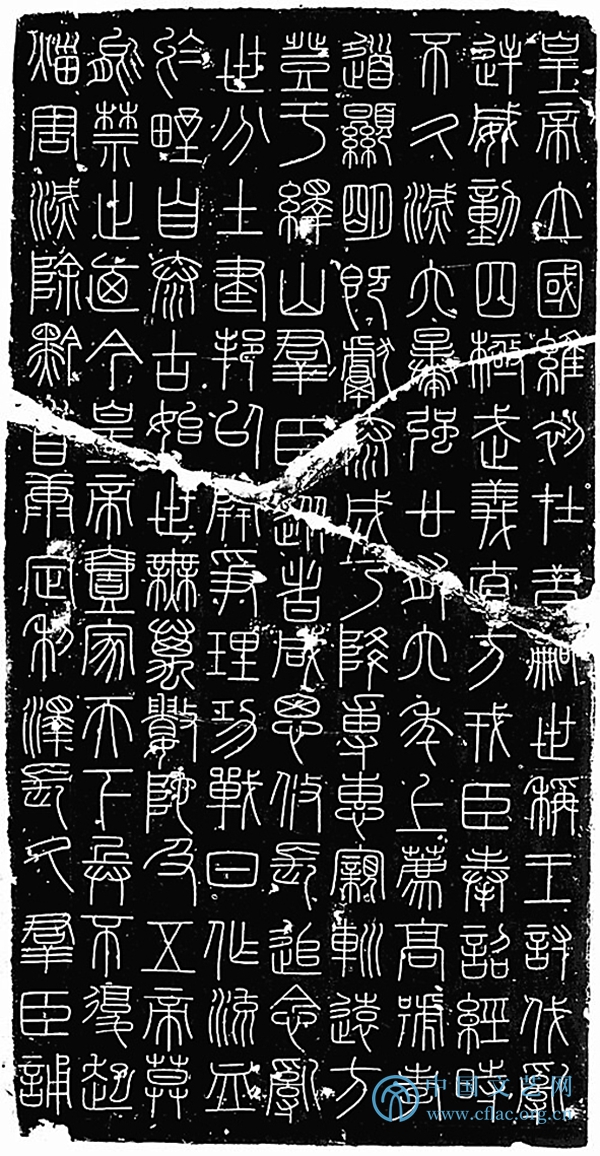 皇帝立國維初在昔嗣世稱王討伐亂
逆威動四極武義直方戎臣奉詔經時
不久滅六暴強廿有六年上薦高號孝
道顯明既獻泰成乃降專惠親巡遠方
登于繹山群臣從者咸思攸長追念亂
世分土建邦以開爭理功戰日作流血
於野自泰古始世無萬數陀及五帝莫
能禁止廼今皇帝壹家天下兵不復起
災害滅除黔首康定利澤長久群臣誦
中国文艺网
www.cflac.org.cn